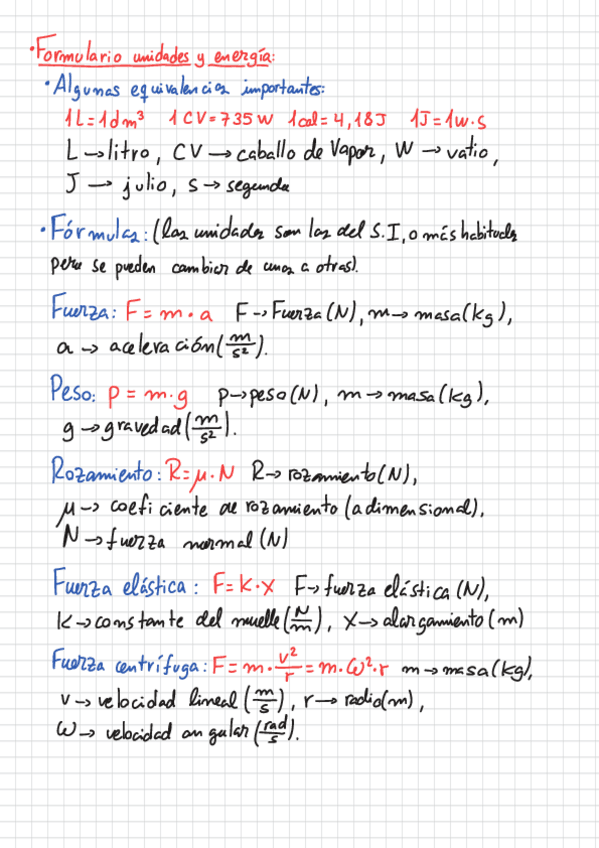 ·Formulario unidades y energía:
·Algunas equivalencias importantes:
1L=1dm³ 1CV=735W 1cal=4,18J 1J=1W·s
L→litro, CV→caballo de Vapor, W→vatio,
J→julio, s→segundo
·Fórmulas: (las unidades son las del S.I, o más habituales
pero se pueden cambiar de unas a otras).
Fuerza: F=m·a F→Fuerza(N), m→masa(kg),
a→aceleración(m/s²).
Peso: p=m·g p→peso(N), m→masa(kg),
g→gravedad(m/s²).
Rozamiento: R=μ·N R→rozamiento(N),
μ→coeficiente de rozamiento (adimensional),
N→fuerza normal(N)
Fuerza elástica: F=K·x F→fuerza elástica(N),
K→constante del muelle(N/m), x→alargamiento(m)
Fuerza centrífuga: F=m·v²/r=m·ω²·r m→masa(kg),
v→velocidad lineal(m/s), r→radio(m),
ω→velocidad angular(rad/s).